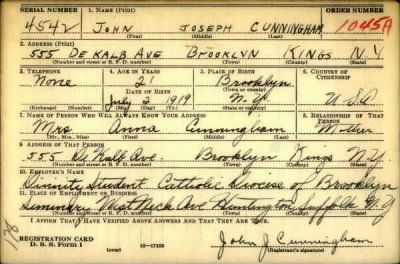 SERIAL NUMBER 1. NAME (Print) ORDER NUMBER
4542 JOHN JOSEPH CUNNINGHAM 1045A
(First) (Middle) (Last)
2. ADDRESS (Print)
555 DE KALB AVE BROOKLYN KINGS N.Y
(Number and street or R. F. D. number) (Town) (County) (State)
3. TELEPHONE 4. AGE IN YEARS 5. PLACE OF BIRTH 6. COUNTRY OF CITIZENSHIP
None 21 Brooklyn
DATE OF BIRTH (Town or county)
July 2 1919 N.Y. U.S.A
(Exchange) (Number) (Mo.) (Day) (Yr.) (State or country)
7. NAME OF PERSON WHO WILL ALWAYS KNOW YOUR ADDRESS 8. RELATIONSHIP OF THAT PERSON
Mrs Anna Cunningham Mother
(Mr., Mrs., Miss) (First) (Middle) (Last)
9. ADDRESS OF THAT PERSON
555 De Kalb Ave. Brooklyn Kings N.Y
(Number and street or R. F. D. number) (Town) (County) (State)
10. EMPLOYER'S NAME
Divinity Student Catholic Diocese of Brooklyn
11. PLACE OF EMPLOYMENT OR BUSINESS
Seminary West Neck Ave Huntington Suffolk N.Y
(Number and street or R. F. D. number) (Town) (County) (State)
I AFFIRM THAT I HAVE VERIFIED ABOVE ANSWERS AND THAT THEY ARE TRUE.
REGISTRATION CARD
D. S. S. Form 1 16—17105 John J. Cunningham